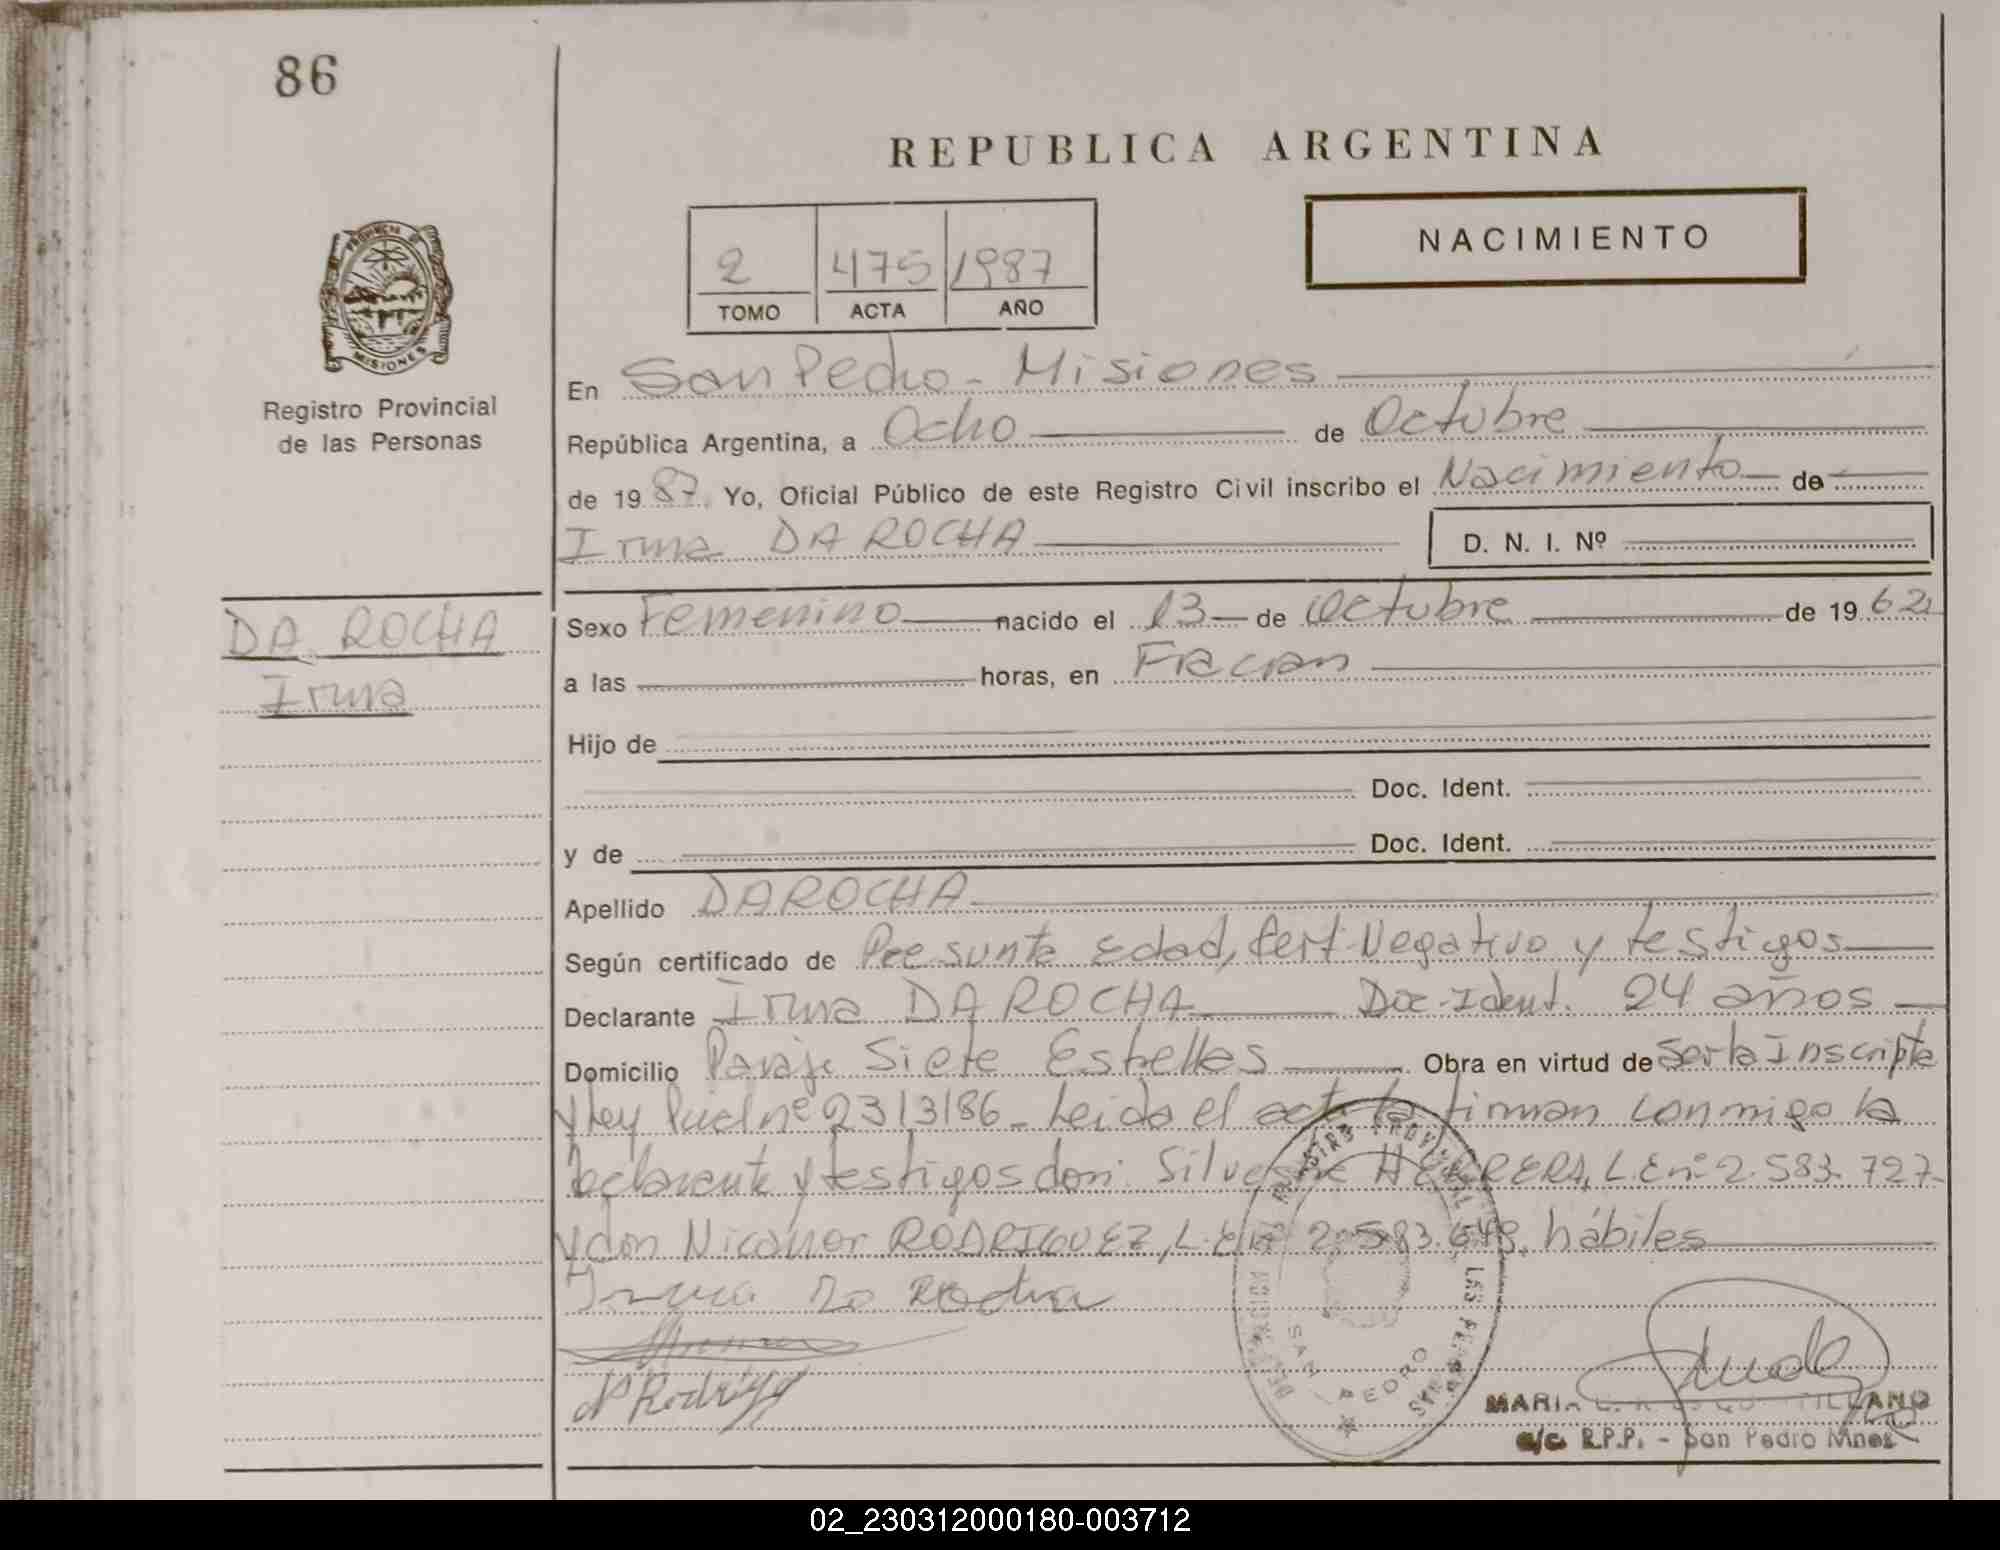 86
REPUBLICA ARGENTINA
NACIMIENTO
2 475 1987
TOMO ACTA AÑO
PROVINCIA DE
MISIONES
Registro Provincial
de las Personas
En San Pedro - Misiones
República Argentina, a Ocho de Octubre
de 19 87. Yo, Oficial Público de este Registro Civil inscribo el Nacimiento de
Irma DA ROCHA D. N. I. Nº
DA ROCHA
Irma
Sexo Femenino nacido el 13 de Octubre de 19 62
a las horas, en Fracran
Hijo de
Doc. Ident.
y de Doc. Ident.
Apellido DA ROCHA
Según certificado de Presunta edad, Cert. Negativo y testigos
Declarante Irma DA ROCHA Doc-Ident. 24 años
Domicilio Paraje Siete Estrellas Obra en virtud de ser la Inscripta
y Ley nº 2313/86 - Leida el acta la firman conmigo la
declarante y testigos don: Silvestre HERRERA, L.E nº 2.583.727-
y don Nicanor RODRIGUEZ, L.E nº 2.583.648, hábiles
Irma Da Rocha
N Rodrigz
SAN PEDRO
a/c. R.P.P. - San Pedro Mnes
02_230312000180-003712